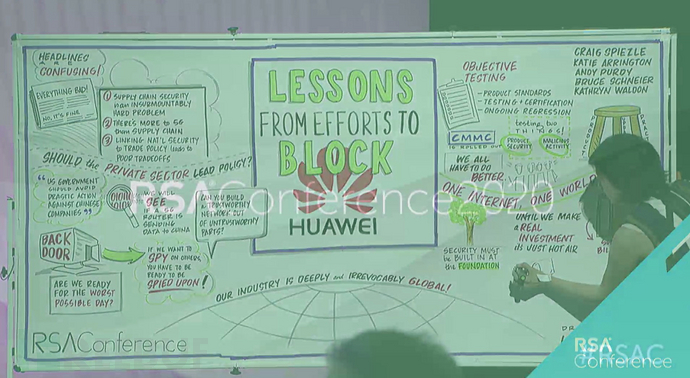 HEADLINES
ARE
CONFUSING!
EVERYTHING BAD!
NO, IT'S FINE
1 SUPPLY CHAIN SECURITY
is an INSURMOUNTABLY
HARD PROBLEM
2 THERE'S MORE to 5G
than SUPPLY CHAIN
3 LINKING NAT'L SECURITY
to TRADE POLICY leads to
POOR TRADEOFFS
SHOULD the PRIVATE SECTOR LEAD POLICY?
"US GOVERNMENT
SHOULD AVOID
DRASTIC ACTION
AGAINST CHINESE
COMPANIES"
WE WILL
SEE
IF A 5G
ROUTER IS
SENDING
DATA to CHINA
CAN YOU BUILD
A TRUSTWORTHY
NETWORK OUT
OF UNTRUSTWORTHY
PARTS?
BACK
DOOR
IF WE WANT TO
SPY ON OTHERS,
YOU HAVE TO BE
READY TO BE
SPIED UPON!
ARE WE READY
FOR THE WORST
POSSIBLE DAY?
LESSONS
FROM EFFORTS TO
BLOCK
HUAWEI
OUR INDUSTRY IS DEEPLY and IRREVOCABLY GLOBAL!
OBJECTIVE
TESTING
- PRODUCT STANDARDS
- TESTING + CERTIFICATION
- ONGOING REGRESSION
CMMC
IS ROLLED OUT
testing two
THINGS!
PRODUCE
SECURITY
MALICIOUS
ACTIVITY
WE ALL
HAVE TO DO
BETTER
ONE INTERNET, ONE WORLD
SECURITY MUST
BE BUILT IN AT
the FOUNDATION
UNTIL WE MAKE
A REAL
INVESTMENT
it's JUST HOT AIR
CRAIG SPIEZLE
KATIE ARRINGTON
ANDY PURDY
BRUCE SCHNEIER
KATHRYN WALDON
RSAConference2020
RSAConference
#RSAC
RSA
Conference